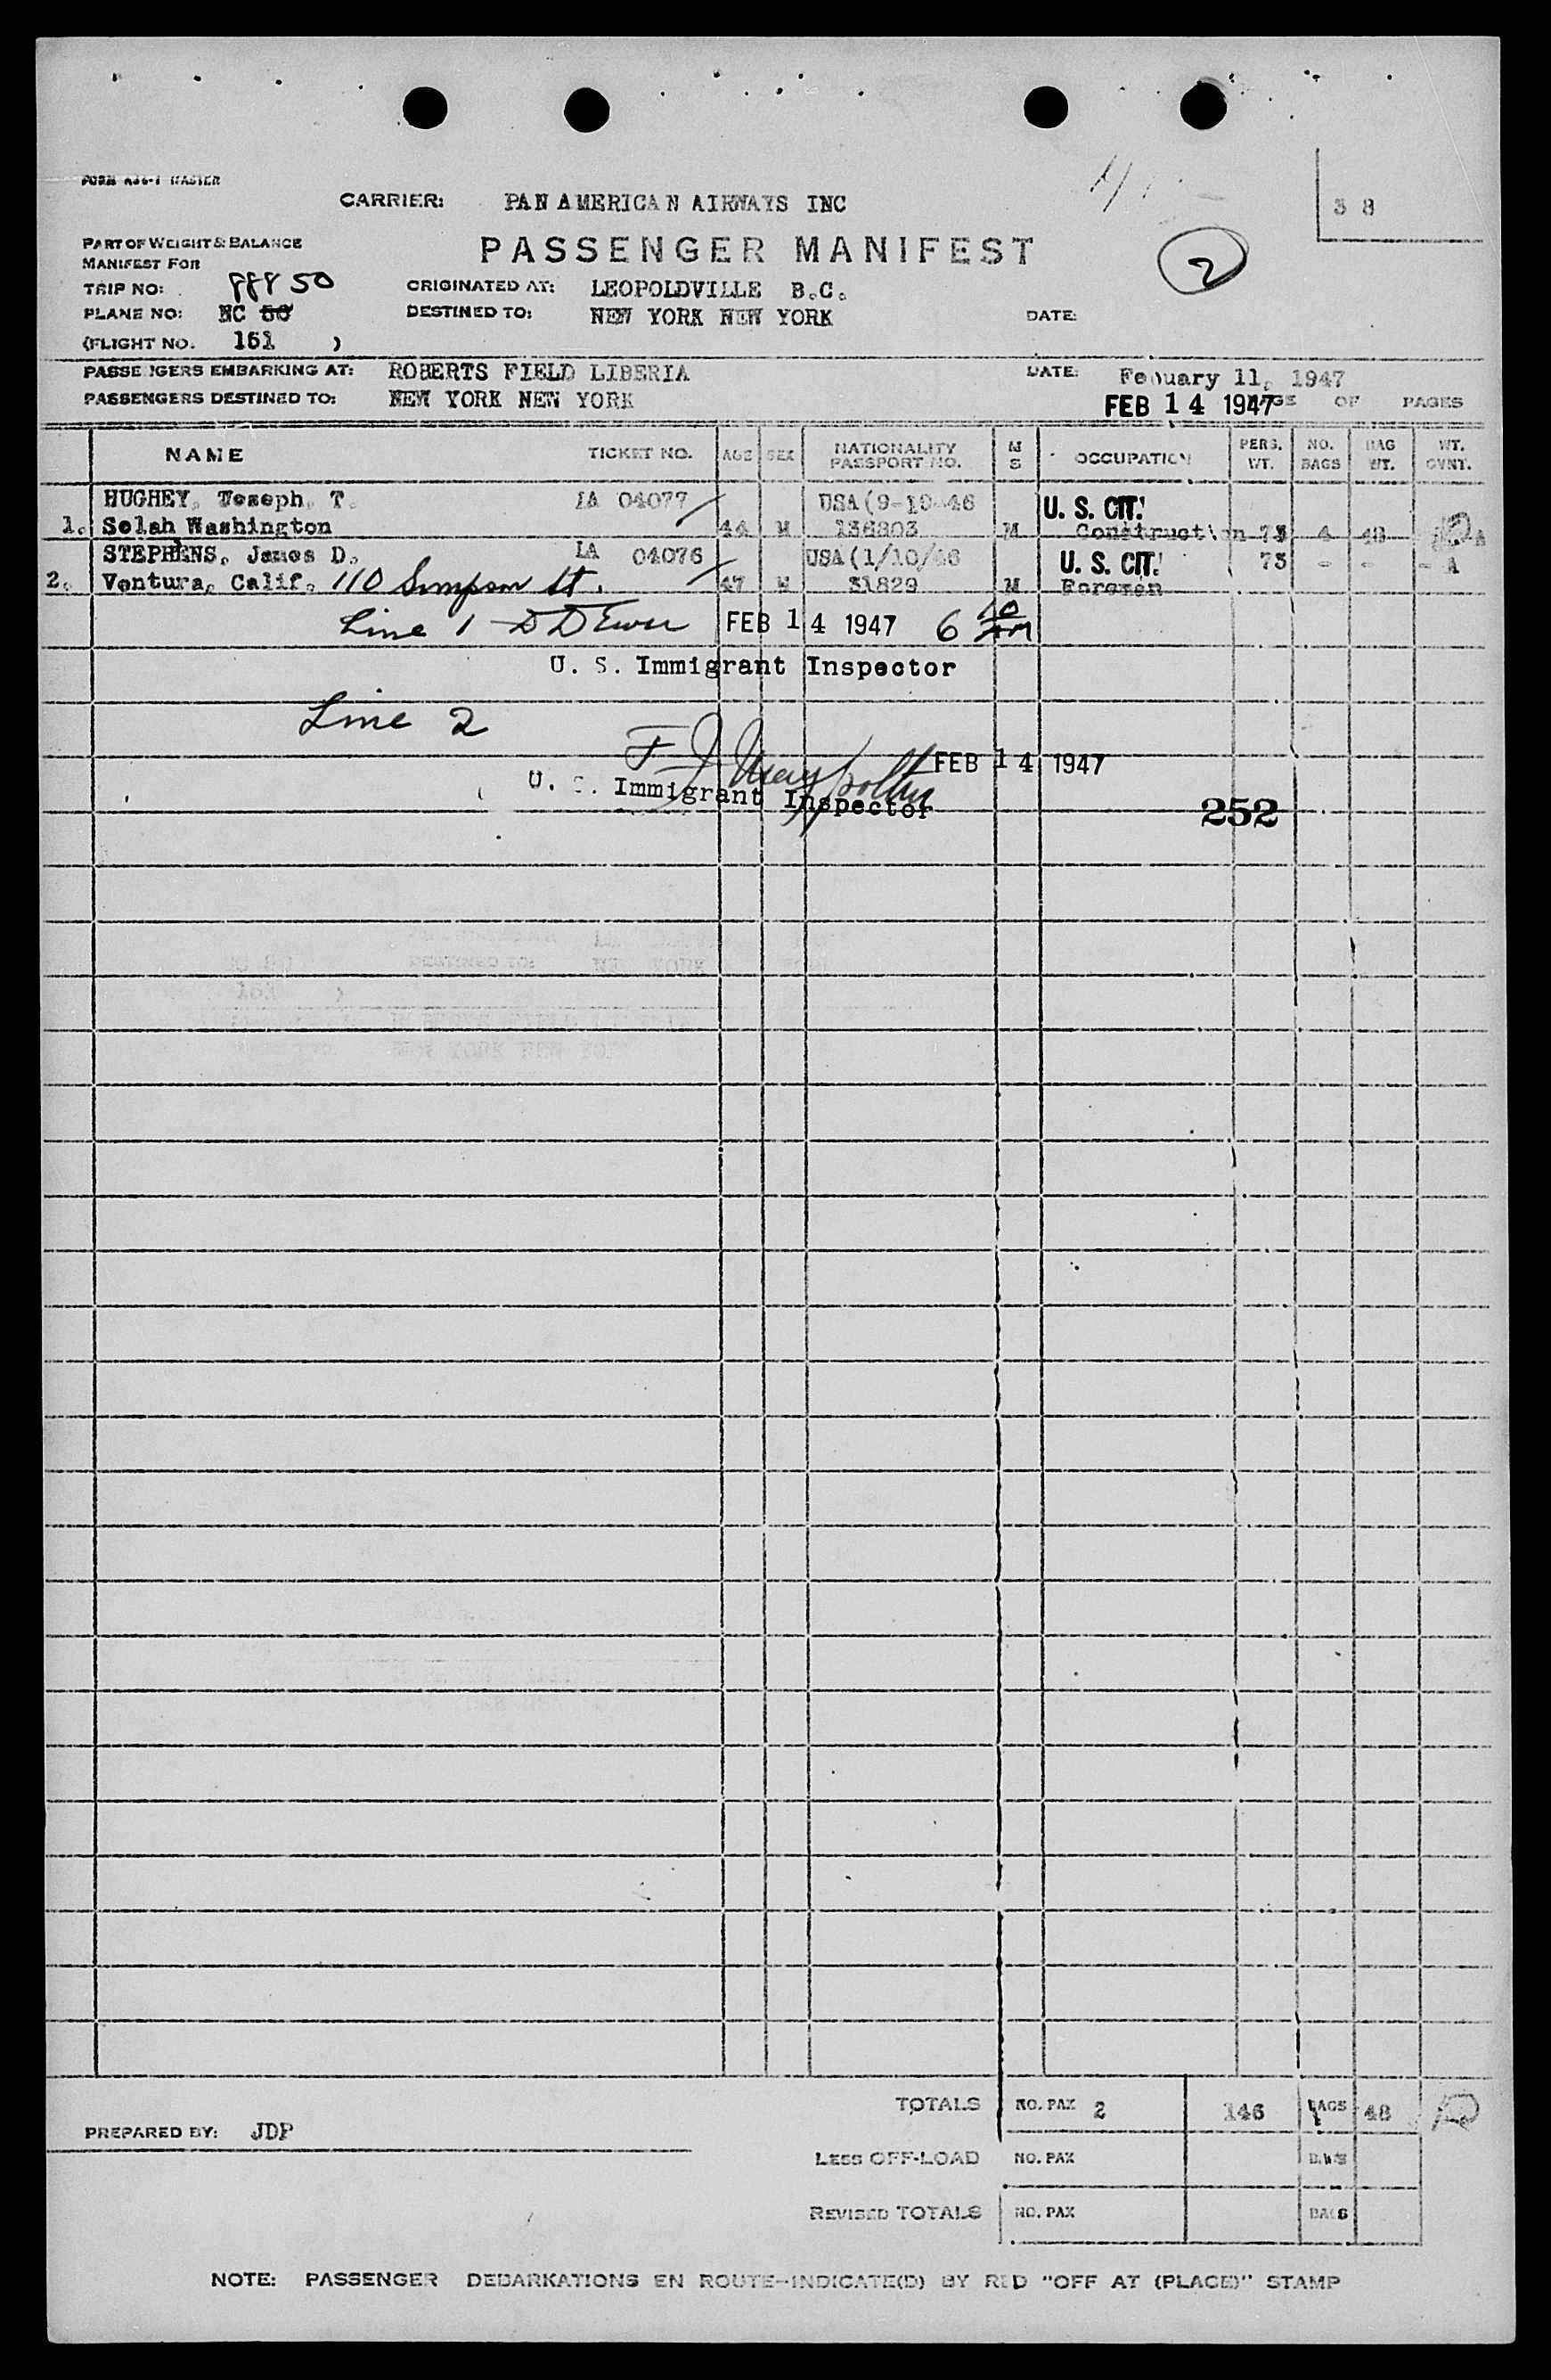 FORM A36-1 MASTER
CARRIER: PAN AMERICAN AIRWAYS INC
38
PART OF WEIGHT & BALANCE
PASSENGER MANIFEST
2
MANIFEST FOR
TRIP NO: 50
ORIGINATED AT: LEOPOLDVILLE B.C.
PLANE NO: NC 50
DESTINED TO: NEW YORK NEW YORK
DATE:
(FLIGHT NO. 161 )
PASSENGERS EMBARKING AT: ROBERTS FIELD LIBERIA
DATE: February 11, 1947
PASSENGERS DESTINED TO: NEW YORK NEW YORK
FEB 14 1947 PAGE OF PAGES
NAME TICKET NO. AGE SEX NATIONALITY PASSPORT NO. M S OCCUPATION PERS. WT. NO. BAGS BAG WT. WT. GVNT.
HUGHEY, Joseph, T. LA 04077 USA (9-19-46 U. S. CIT.
1. Selah Washington 44 M 136803 M Construction 73 4 48 A
STEPHENS, James D. LA 04076 USA (1/10/46 U. S. CIT. 73 - - - A
2. Ventura, Calif. 110 Simpson St. 47 M 31829 M Foremen
Line 1 FEB 14 1947 6 10 AM
U. S. Immigrant Inspector
Line 2
FEB 14 1947
U. S. Immigrant Inspector
252
TOTALS NO. PAX 2 146 BAGS 48
PREPARED BY: JDP
LESS OFF-LOAD NO. PAX BAGS
REVISED TOTALS NO. PAX BAGS
NOTE: PASSENGER DEBARKATIONS EN ROUTE-INDICATE(D) BY RED "OFF AT (PLACE)" STAMP